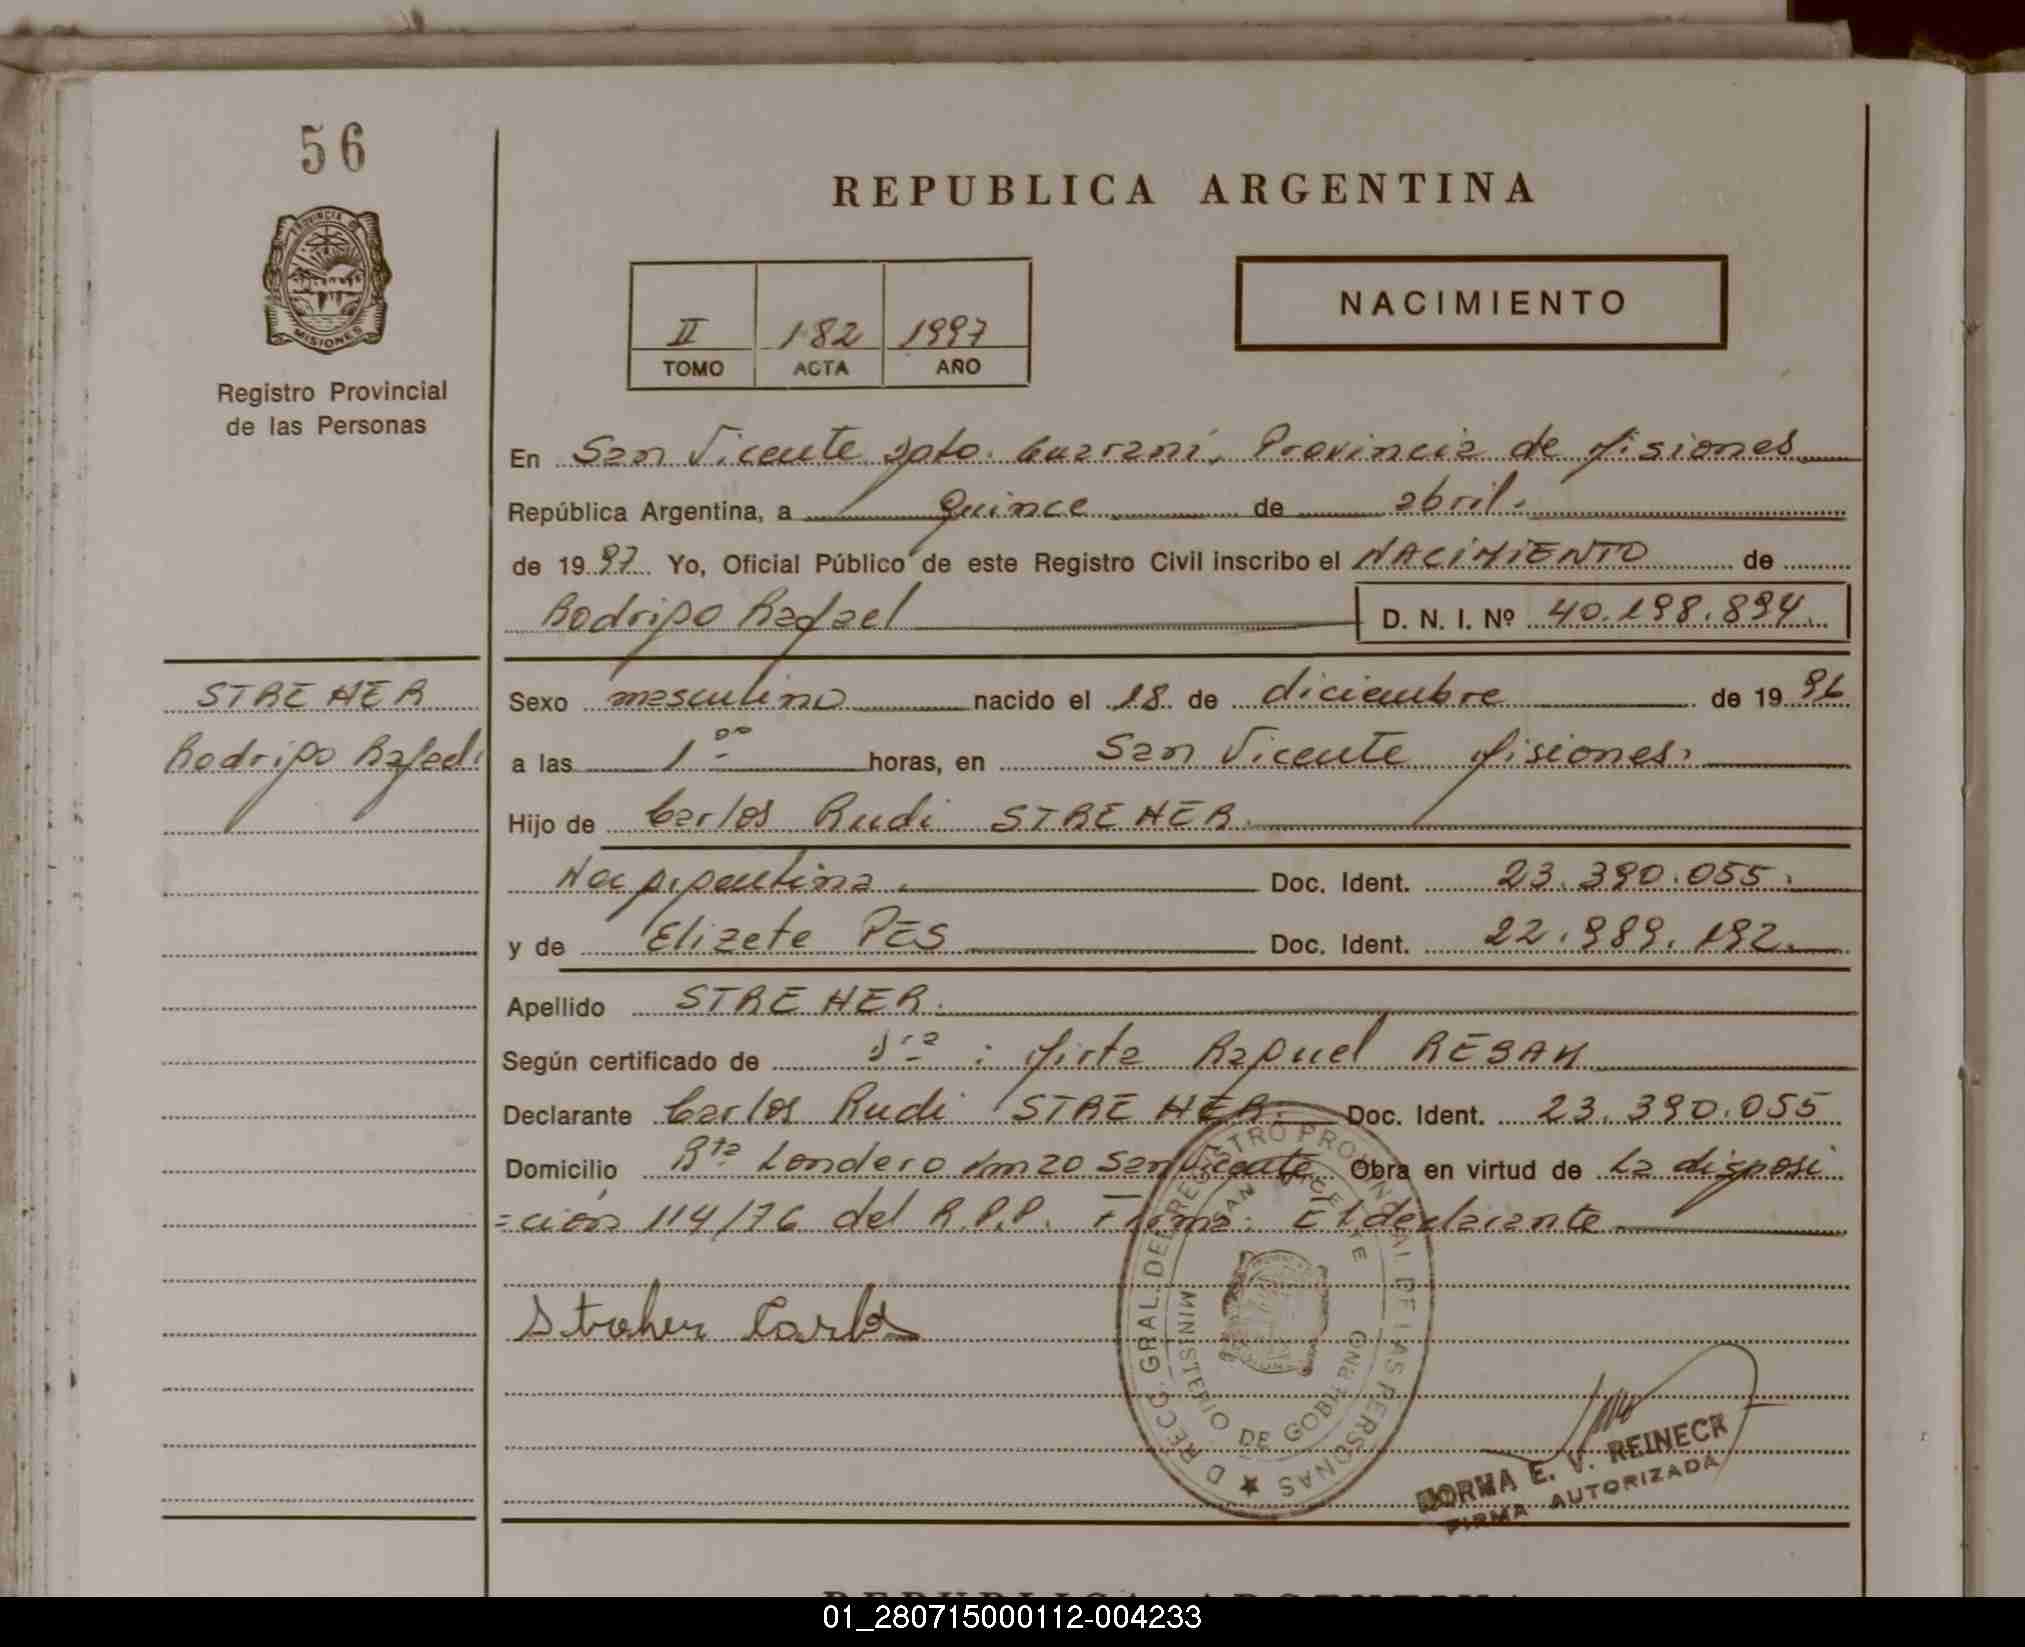 56
PROVINCIA DE
MISIONES
Registro Provincial
de las Personas
REPUBLICA ARGENTINA
II 182 1997
TOMO ACTA AÑO
NACIMIENTO
En San Vicente Dpto. Guaraní, Provincia de Misiones
República Argentina, a Quince de abril.
de 1997 Yo, Oficial Público de este Registro Civil inscribo el NACIMIENTO de
Rodrigo Rafael D. N. I. Nº 40.198.894.
STREHER
Rodrigo Rafael.
Sexo masculino nacido el 18 de diciembre de 1996
a las 1 00 horas, en San Vicente Misiones.
Hijo de Carlos Rudi STREHER.
Doc. Ident. 23.390.055.
y de Elizete PES Doc. Ident. 22.989.192.
Apellido STREHER.
Según certificado de Dra : Mirta Raquel
Declarante Carlos Rudi STREHER. Doc. Ident. 23.390.055
Domicilio Rta Londero Km 20 San Vicente Obra en virtud de La disposi
=ción 114/76 del R.P.P. Firma: El declarante
Streher Carlos
DIRECC. GRAL. DEL REGISTRO PROVINCIAL DE LAS PERSONAS
SAN VICENTE
MINISTERIO DE GOBIERNO
NORMA E. V. REINECK
FIRMA AUTORIZADA
REPUBLICA ARGENTINA
01_280715000112-004233